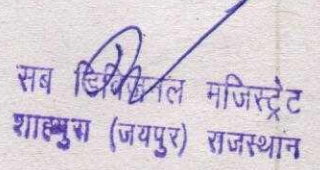 सब डिविजनल मजिस्ट्रेट
शाहपुरा (जयपुर) राजस्थान